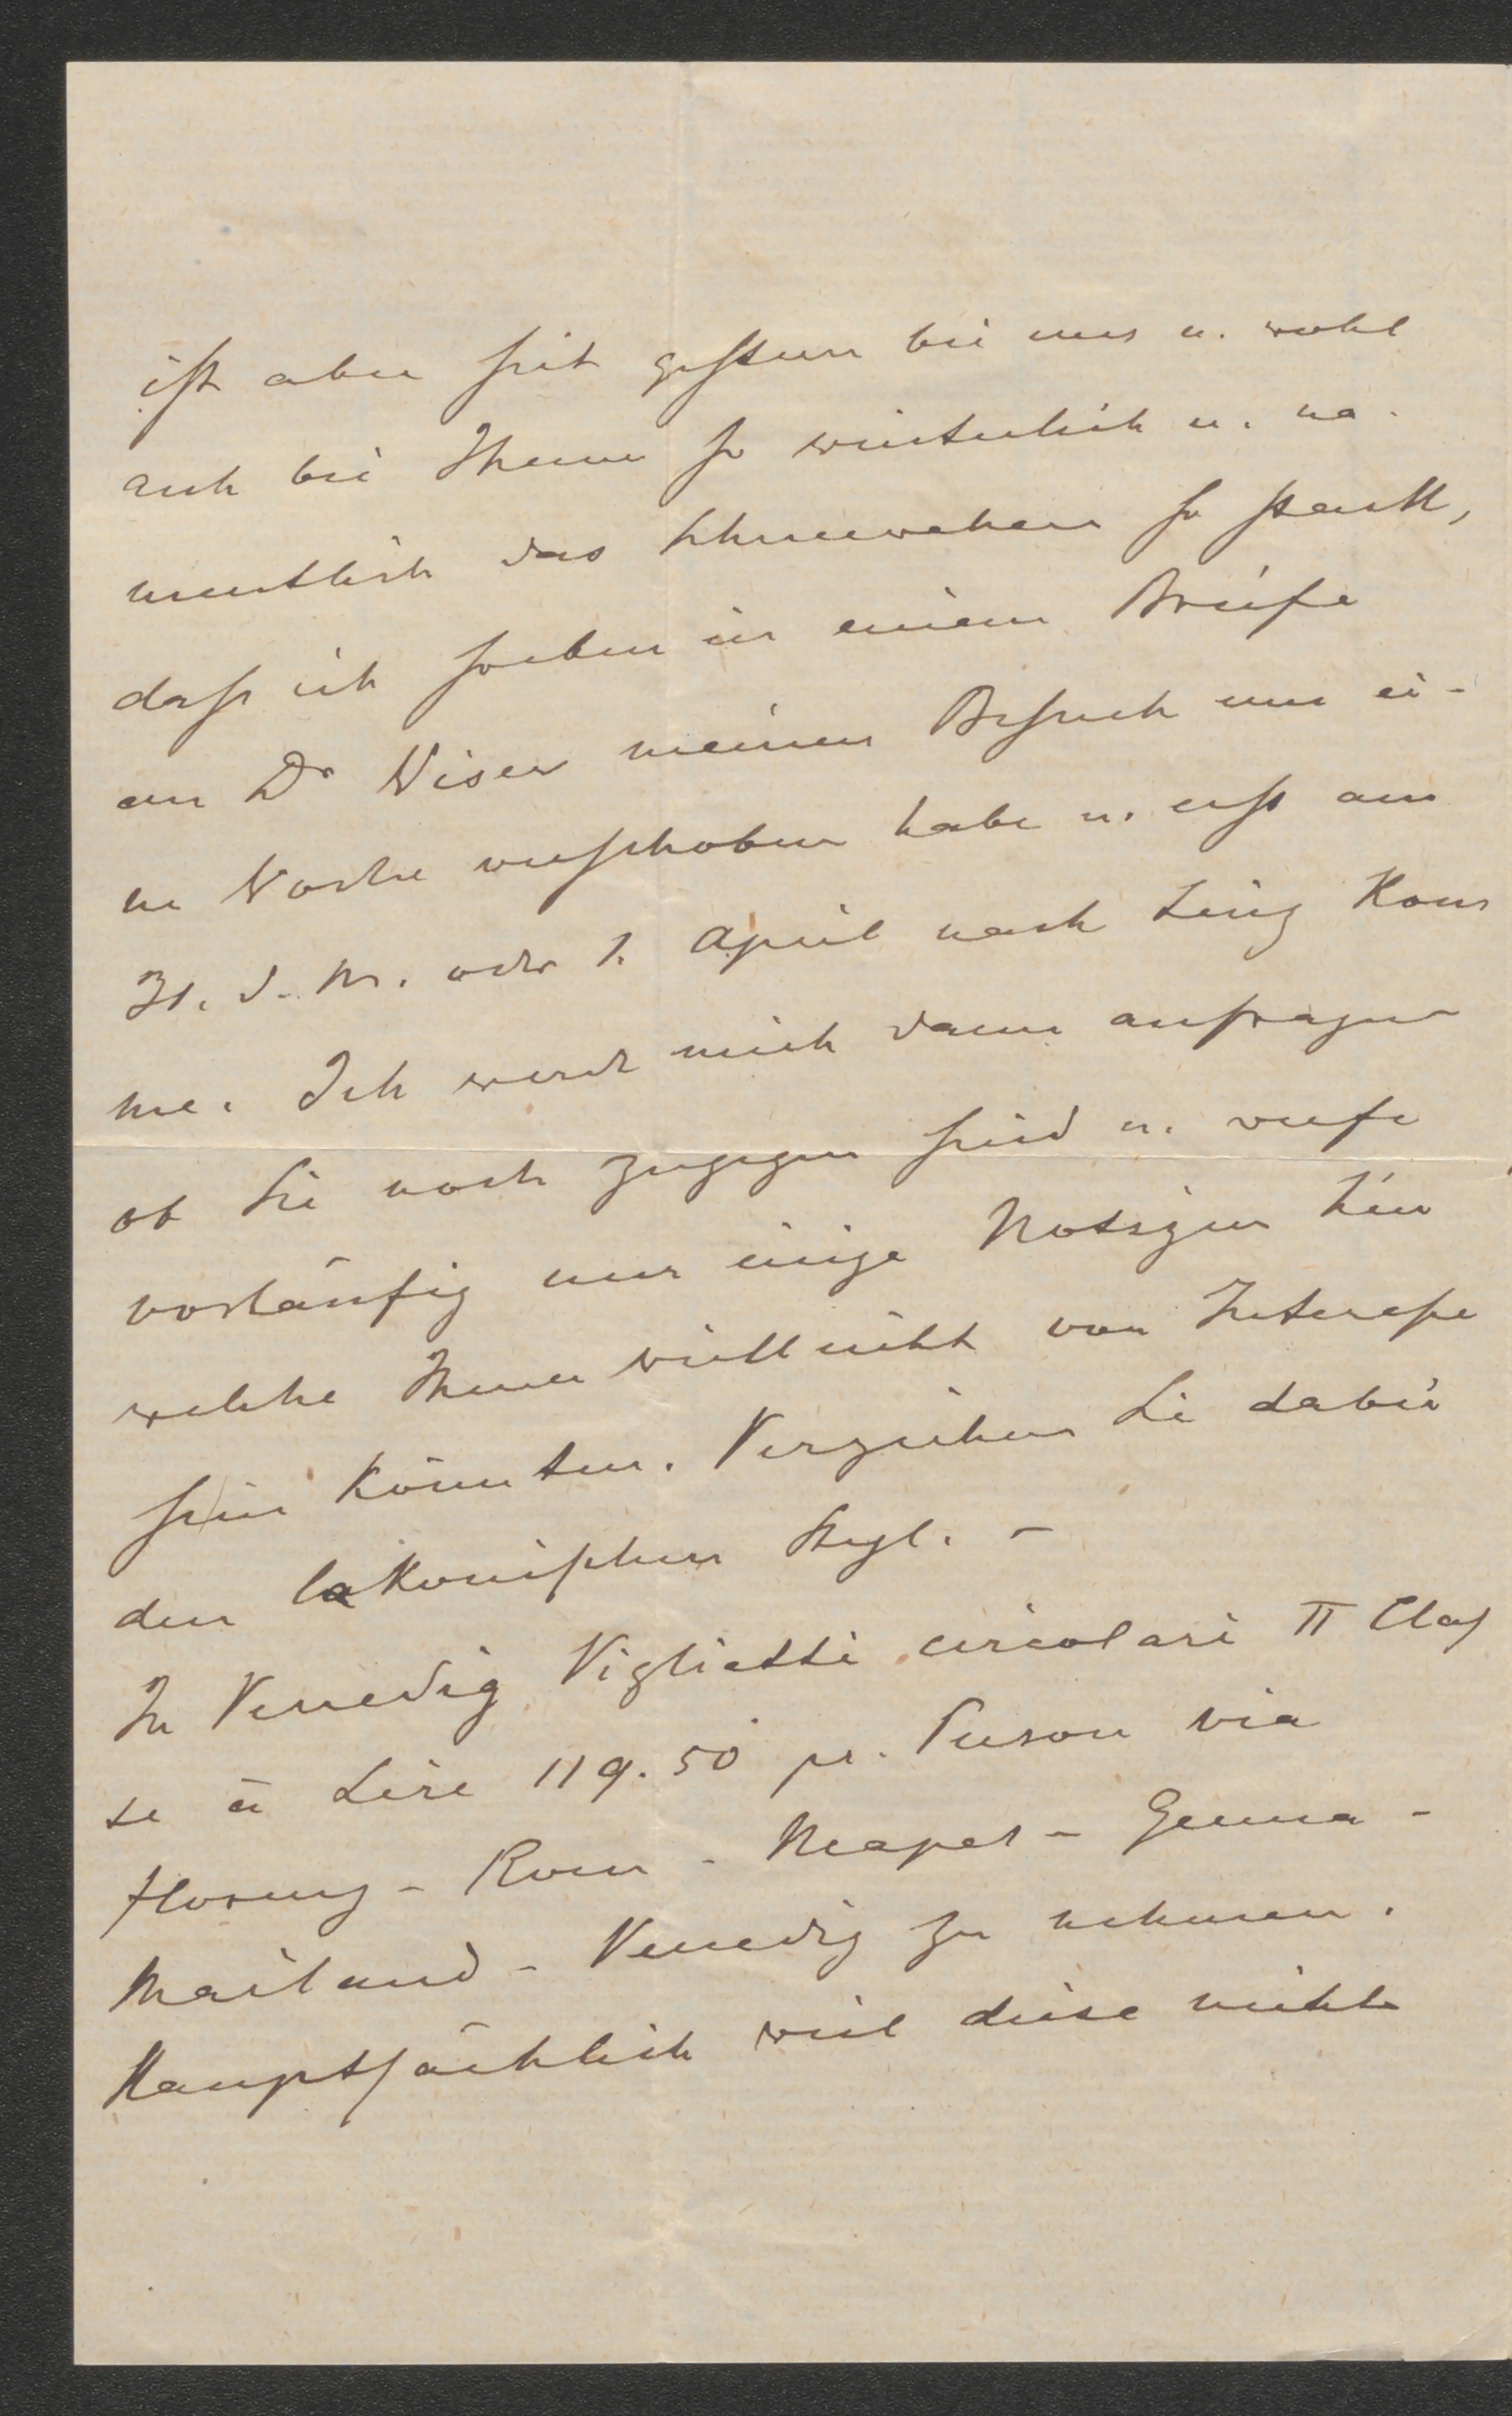 ist aber seit gestern bei uns u. wohl
auch bei Ihnen so winterlich u. na-
mentlich das Schneewehen so stark,
dass ich soeben in einem Briefe
an Dr Wiser meinen Besuch um ei-
ne Woche verschoben habe u. erst am
31. d. M. oder 1. April nach Linz kom
me. Ich werde mich dann anfragen
ob Sie noch zugegen sind u. werfe
vorläufig nur einige Notizen hin
welche Ihnen vielleicht von Interesse
sein könnten. Verzeihen Sie dabei
den lakonischen Styl. –
In Venedig Viglietti circolari II Clas
se à Lire 119.50 pr. Person via
Florenz – Rom – Neapel – Genua –
Mailand – Venedig zu nehmen.
Hauptsächlich weil diese nicht